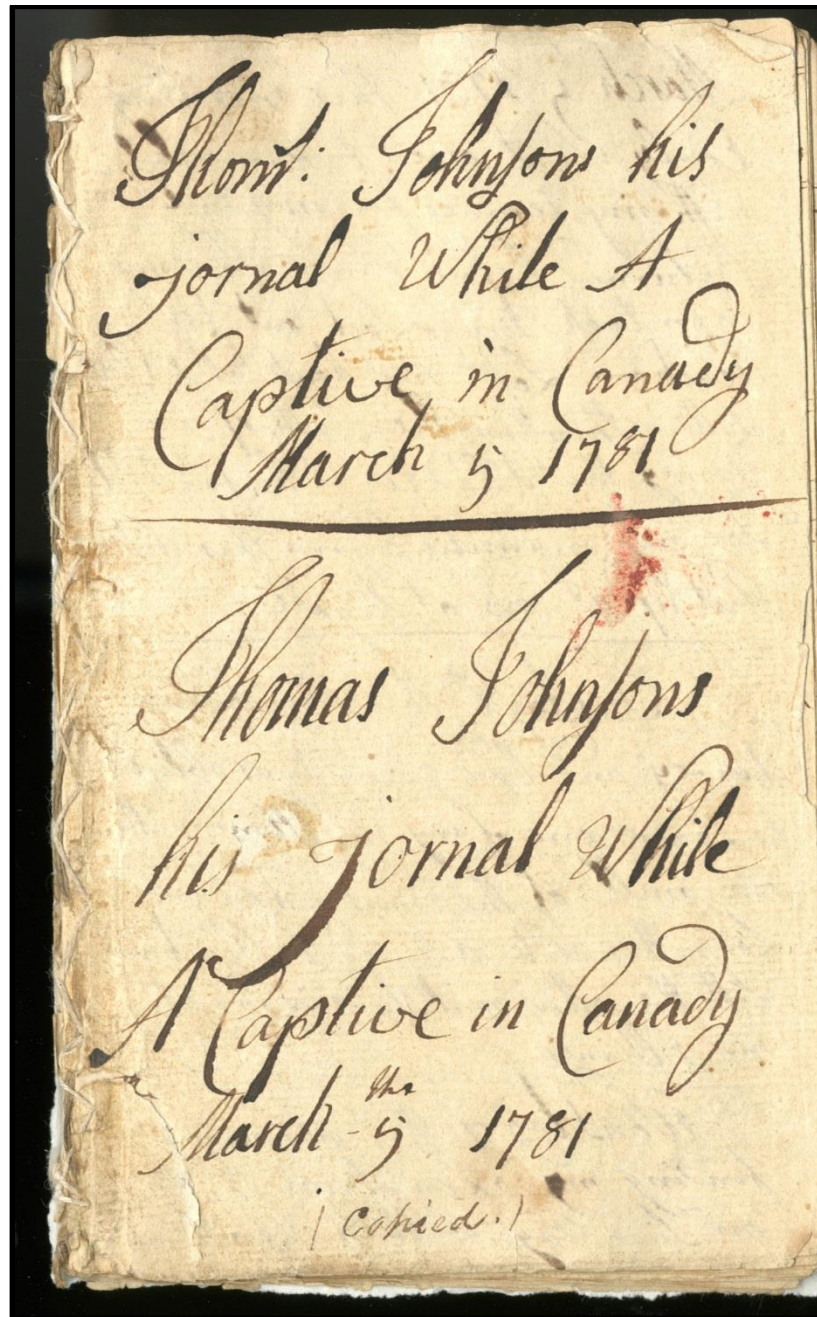 Thoms: Johnsons his
jornal While A
Captive in Canady
March 5 1781
Thomas Johnsons
his jornal While
A Captive in Canady
March 5th 1781
(Copied.)